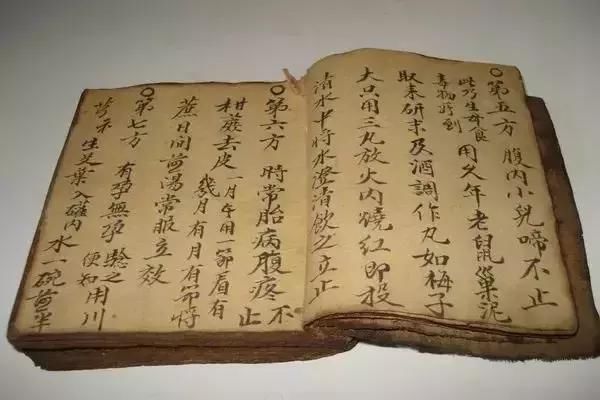 ○第五方 腹内小兒啼不止
此乃生母食
毒物所到 用久年老鼠巢泥
取来研末及酒調作丸如梅子
大只用三丸放火内燒紅即投
清水中將水澄清飲之立止
○第六方 時常胎病腹疼不止
柑蔗去皮 一月 用一節 有
幾月有月有節將
蔗日間煎湯常服立效
○第七方 有孕無孕驗之便知用川
芎不 生芝葉入罐内水一碗煎半